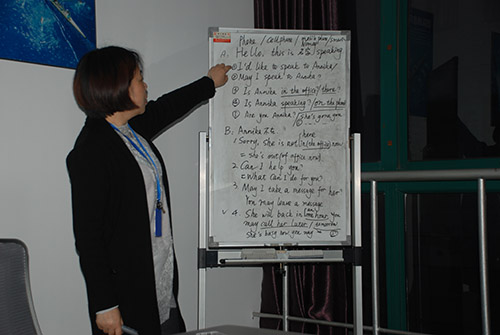 Phone / cellphone / mobile phone /
A. Hello. this is 2.6/speaking
① I'd like to speak to Annika/
② May I speak to Annika?
③ Is Annika in the office?/there?
④ Is Annika speaking?/on the phone
⑤ Are you Annika? /
B: Annika
here
1 Sorry, she is not in (the office) now
= she's out (of office now)
2 Can I help you?
= What can I do for you?
3. May I take a message for her?
You may leave a message
4. She will back in (an) one hour. You
may call her later / tomorrow
she's busy now you may